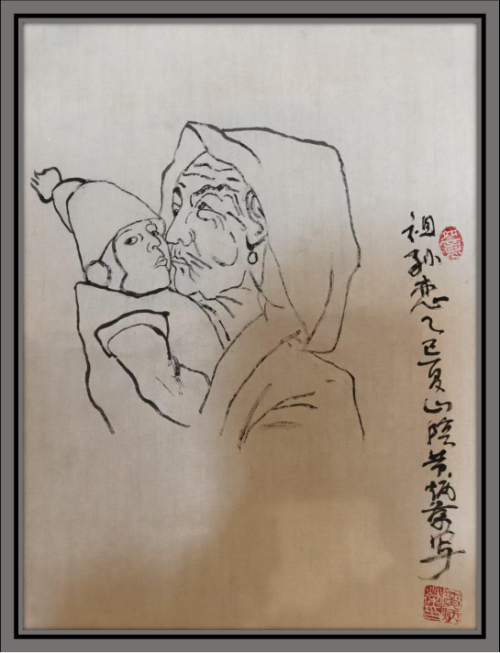 祖孙恋乙巳夏山阴黄炳荣写